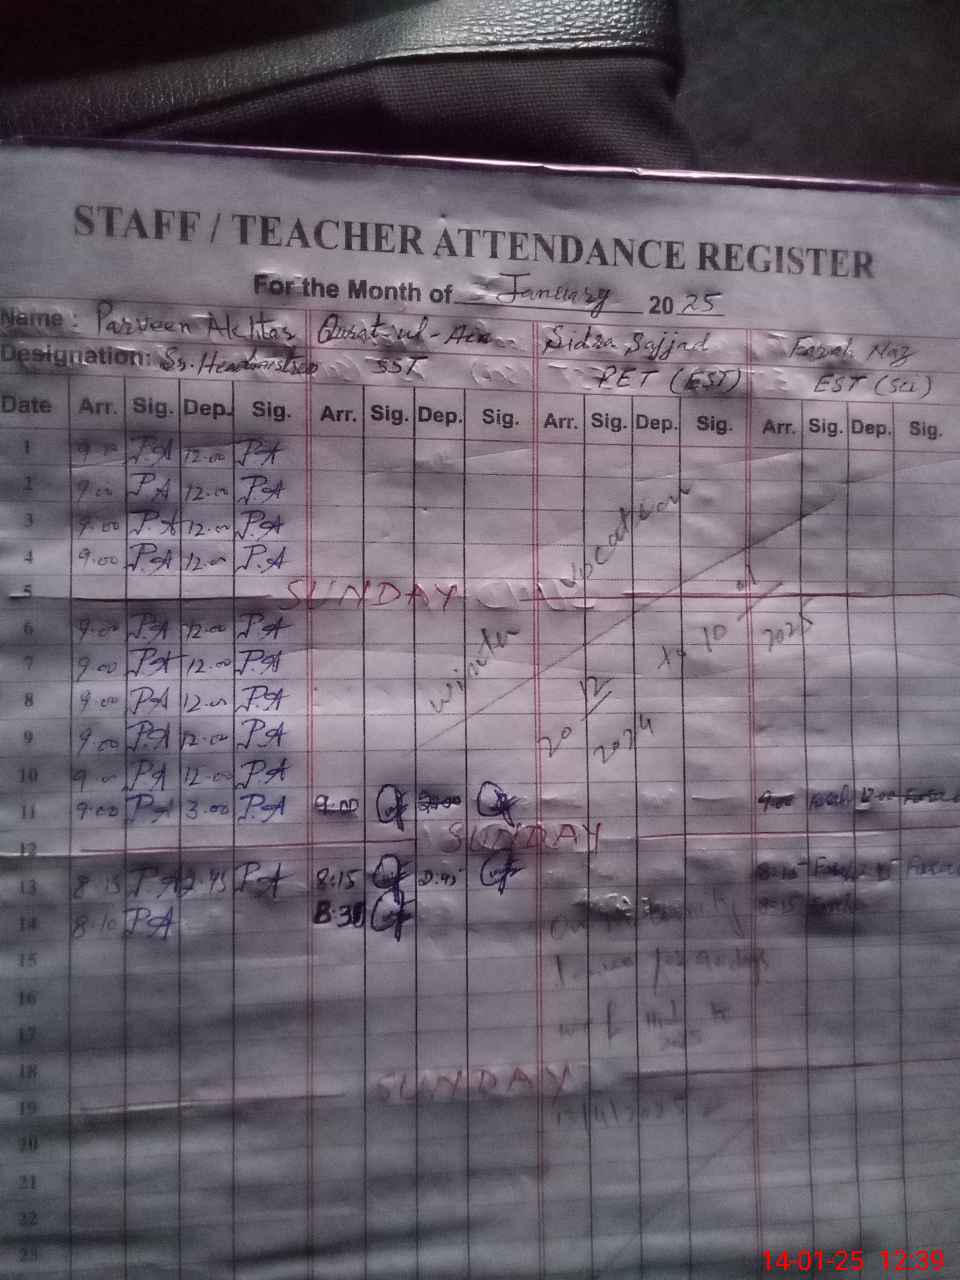 STAFF / TEACHER ATTENDANCE REGISTER
For the Month of January 2025
Name : Parveen Akhtar Qurat-ul-Ain Sidra Sajjad Farah Naz
Designation: Sr. Headmistress SST PET (EST) EST (Sci)
Date Arr. Sig. Dep. Sig. Arr. Sig. Dep. Sig. Arr. Sig. Dep. Sig. Arr. Sig. Dep. Sig.
1 9.00 P.A 12.00 P.A
2 9.00 P.A 12.00 P.A
3 9.00 P.A 12.00 P.A
4 9.00 P.A 12.00 P.A
5 SUNDAY
winter vacation
20/12/2024 to 10/01/2025
6 9.00 P.A 12.00 P.A
7 9.00 P.A 12.00 P.A
8 9.00 P.A 12.00 P.A
9 9.00 P.A 12.00 P.A
10 9.00 P.A 12.00 P.A
11 9:00 P.A 3.00 P.A 9:00 9:00 Farah 12:00 Farah
12 SUNDAY
13 8:15 P.A 2.45 P.A 8:15 2:45 8:15 Farah 2:45 Farah
14 8:10 P.A 8:30 8:15 Farah
15 for 90 days
16
17
18
19 SUNDAY
20
21
22
23
14-01-25 12:39